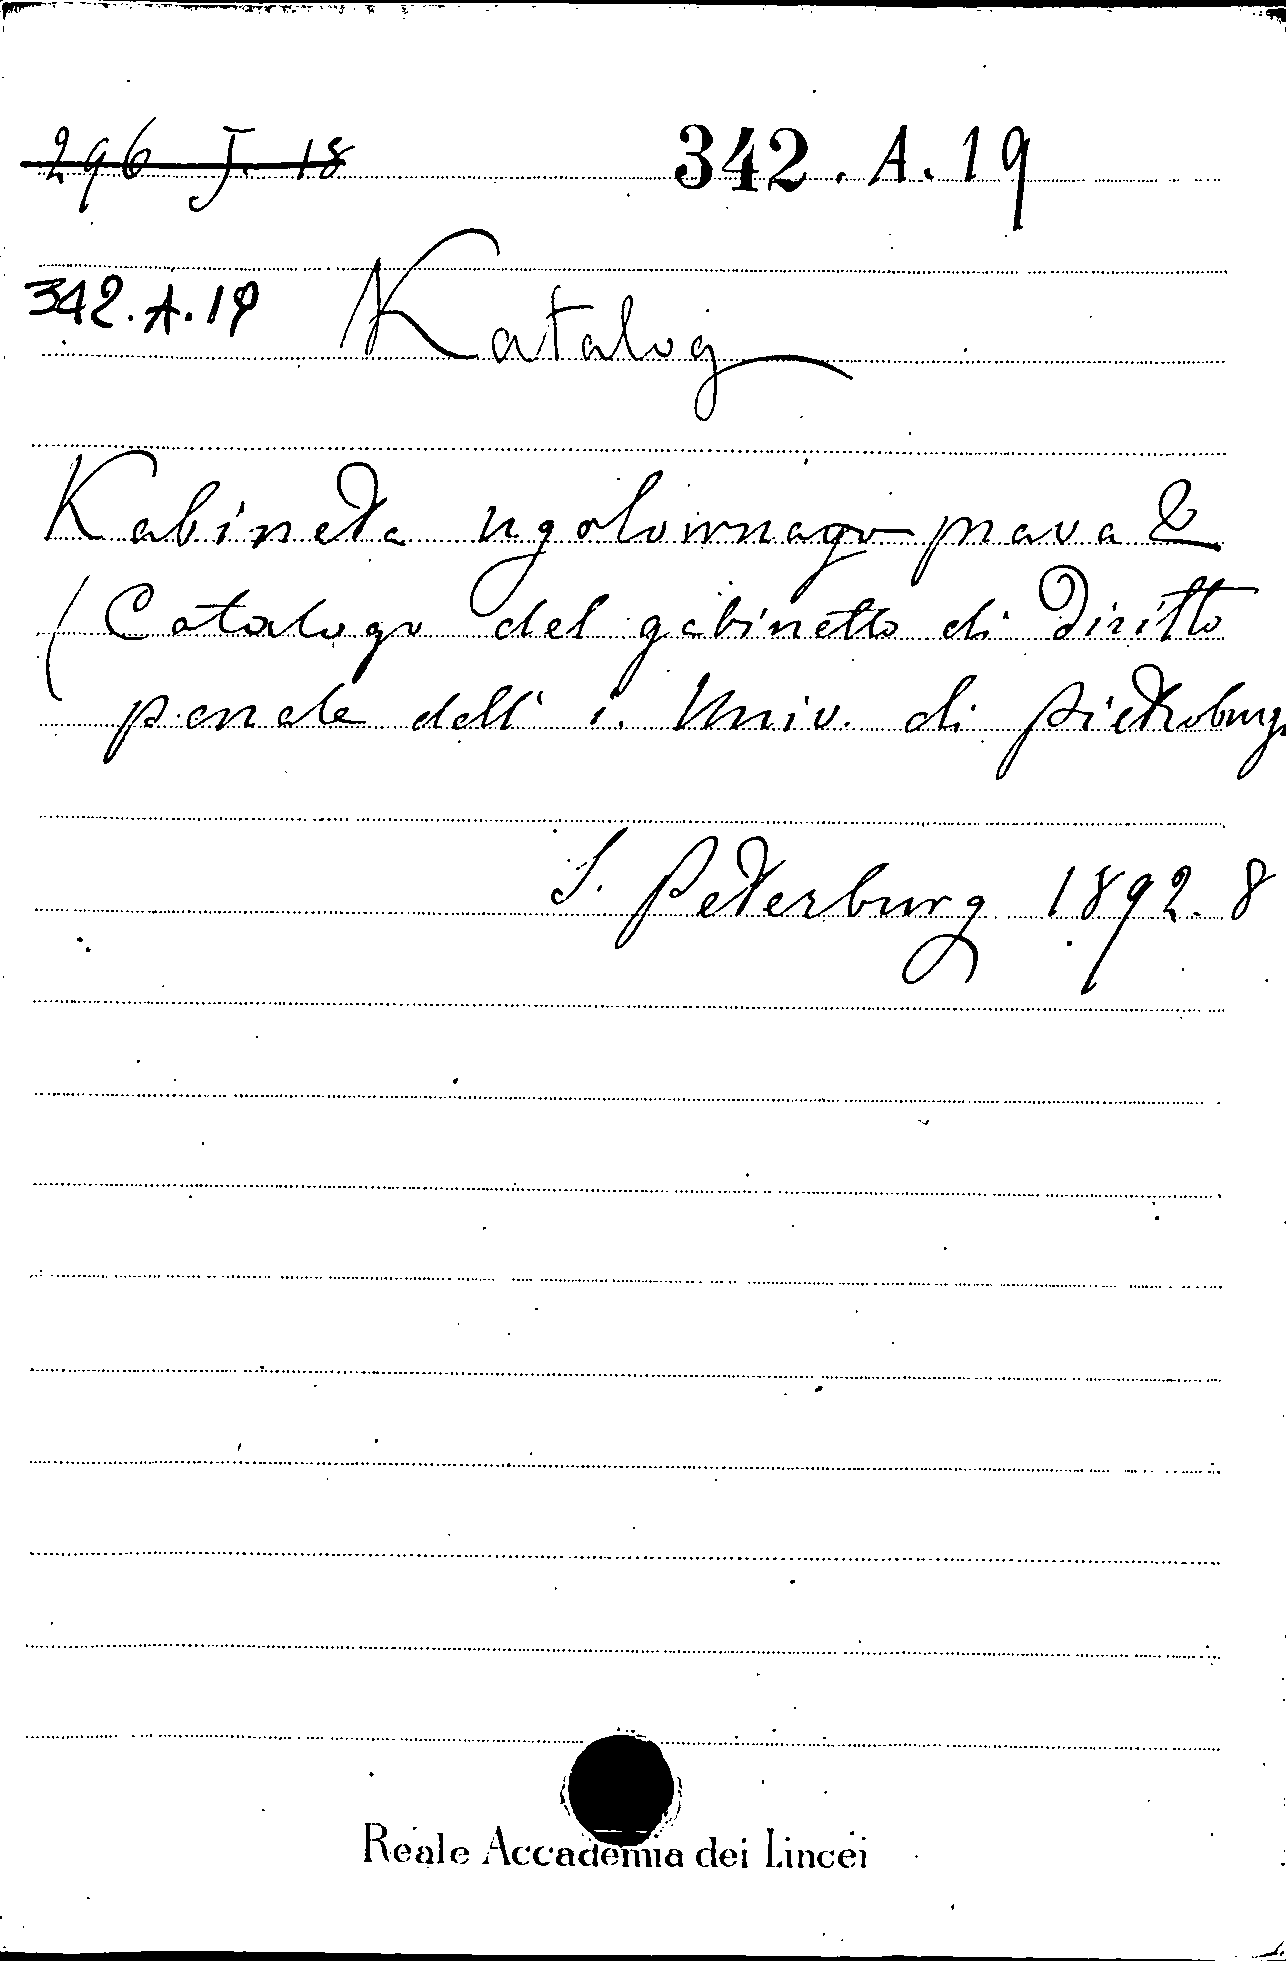 296 J. 18
342. A. 19
342. A. 19
Katalog
Kabineta ugolownago prava &
(Catalogo del gabinetto di Diritto
penale dell' i. Univ. di Pietroburgo
S. Peterburg 1892. 8
Reale Accademia dei Lincei